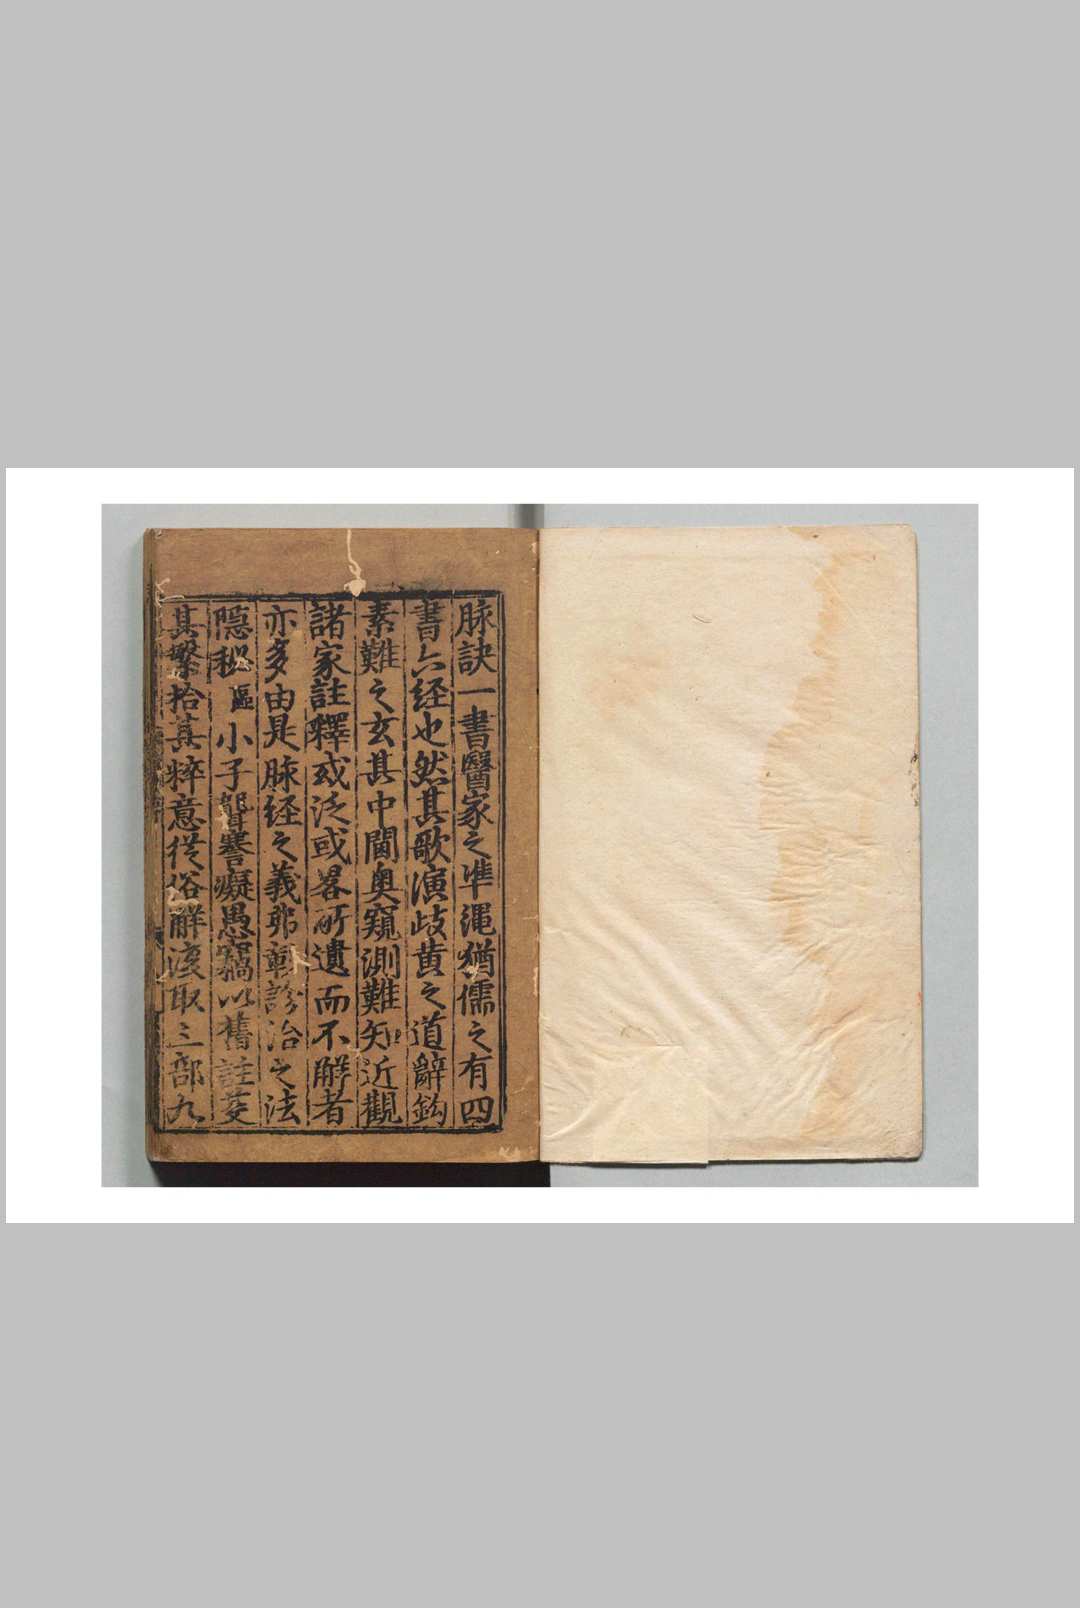 脉訣一書醫家之準繩猶儒之有四
書六经也然其歌演歧黄之道辭鈎
素難之玄其中閫奥窺測難知近觀
諸家註釋或泛或畧所遺而不觧者
亦多由是脉经之義弗彰診治之法
隱秘 區小子瞽瞽癡愚竊以舊註芟
其繁拾其粹意從俗觧後取三部九